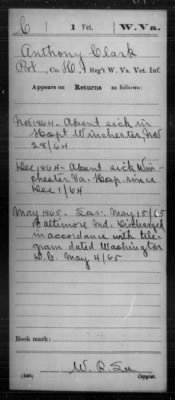 C | 1 Vet. | W. Va.
Anthony Clark
Pvt, Co. H, 1 Reg't W. Va. Vet. Inf.
Appears on Returns as follows:
Nov 1864 - Absent sick in
Hosp't Winchester, Nov
28/64
Dec 1864 - Absent sick Win-
chester Va. Hosp. since
Dec 1/64
May 1865 - May 15/65
Baltimore Md. Discharged
in accordance with tele-
gram dated Washington
D.C. May 4/65
Book mark:
W. R.
(546) Copyist.